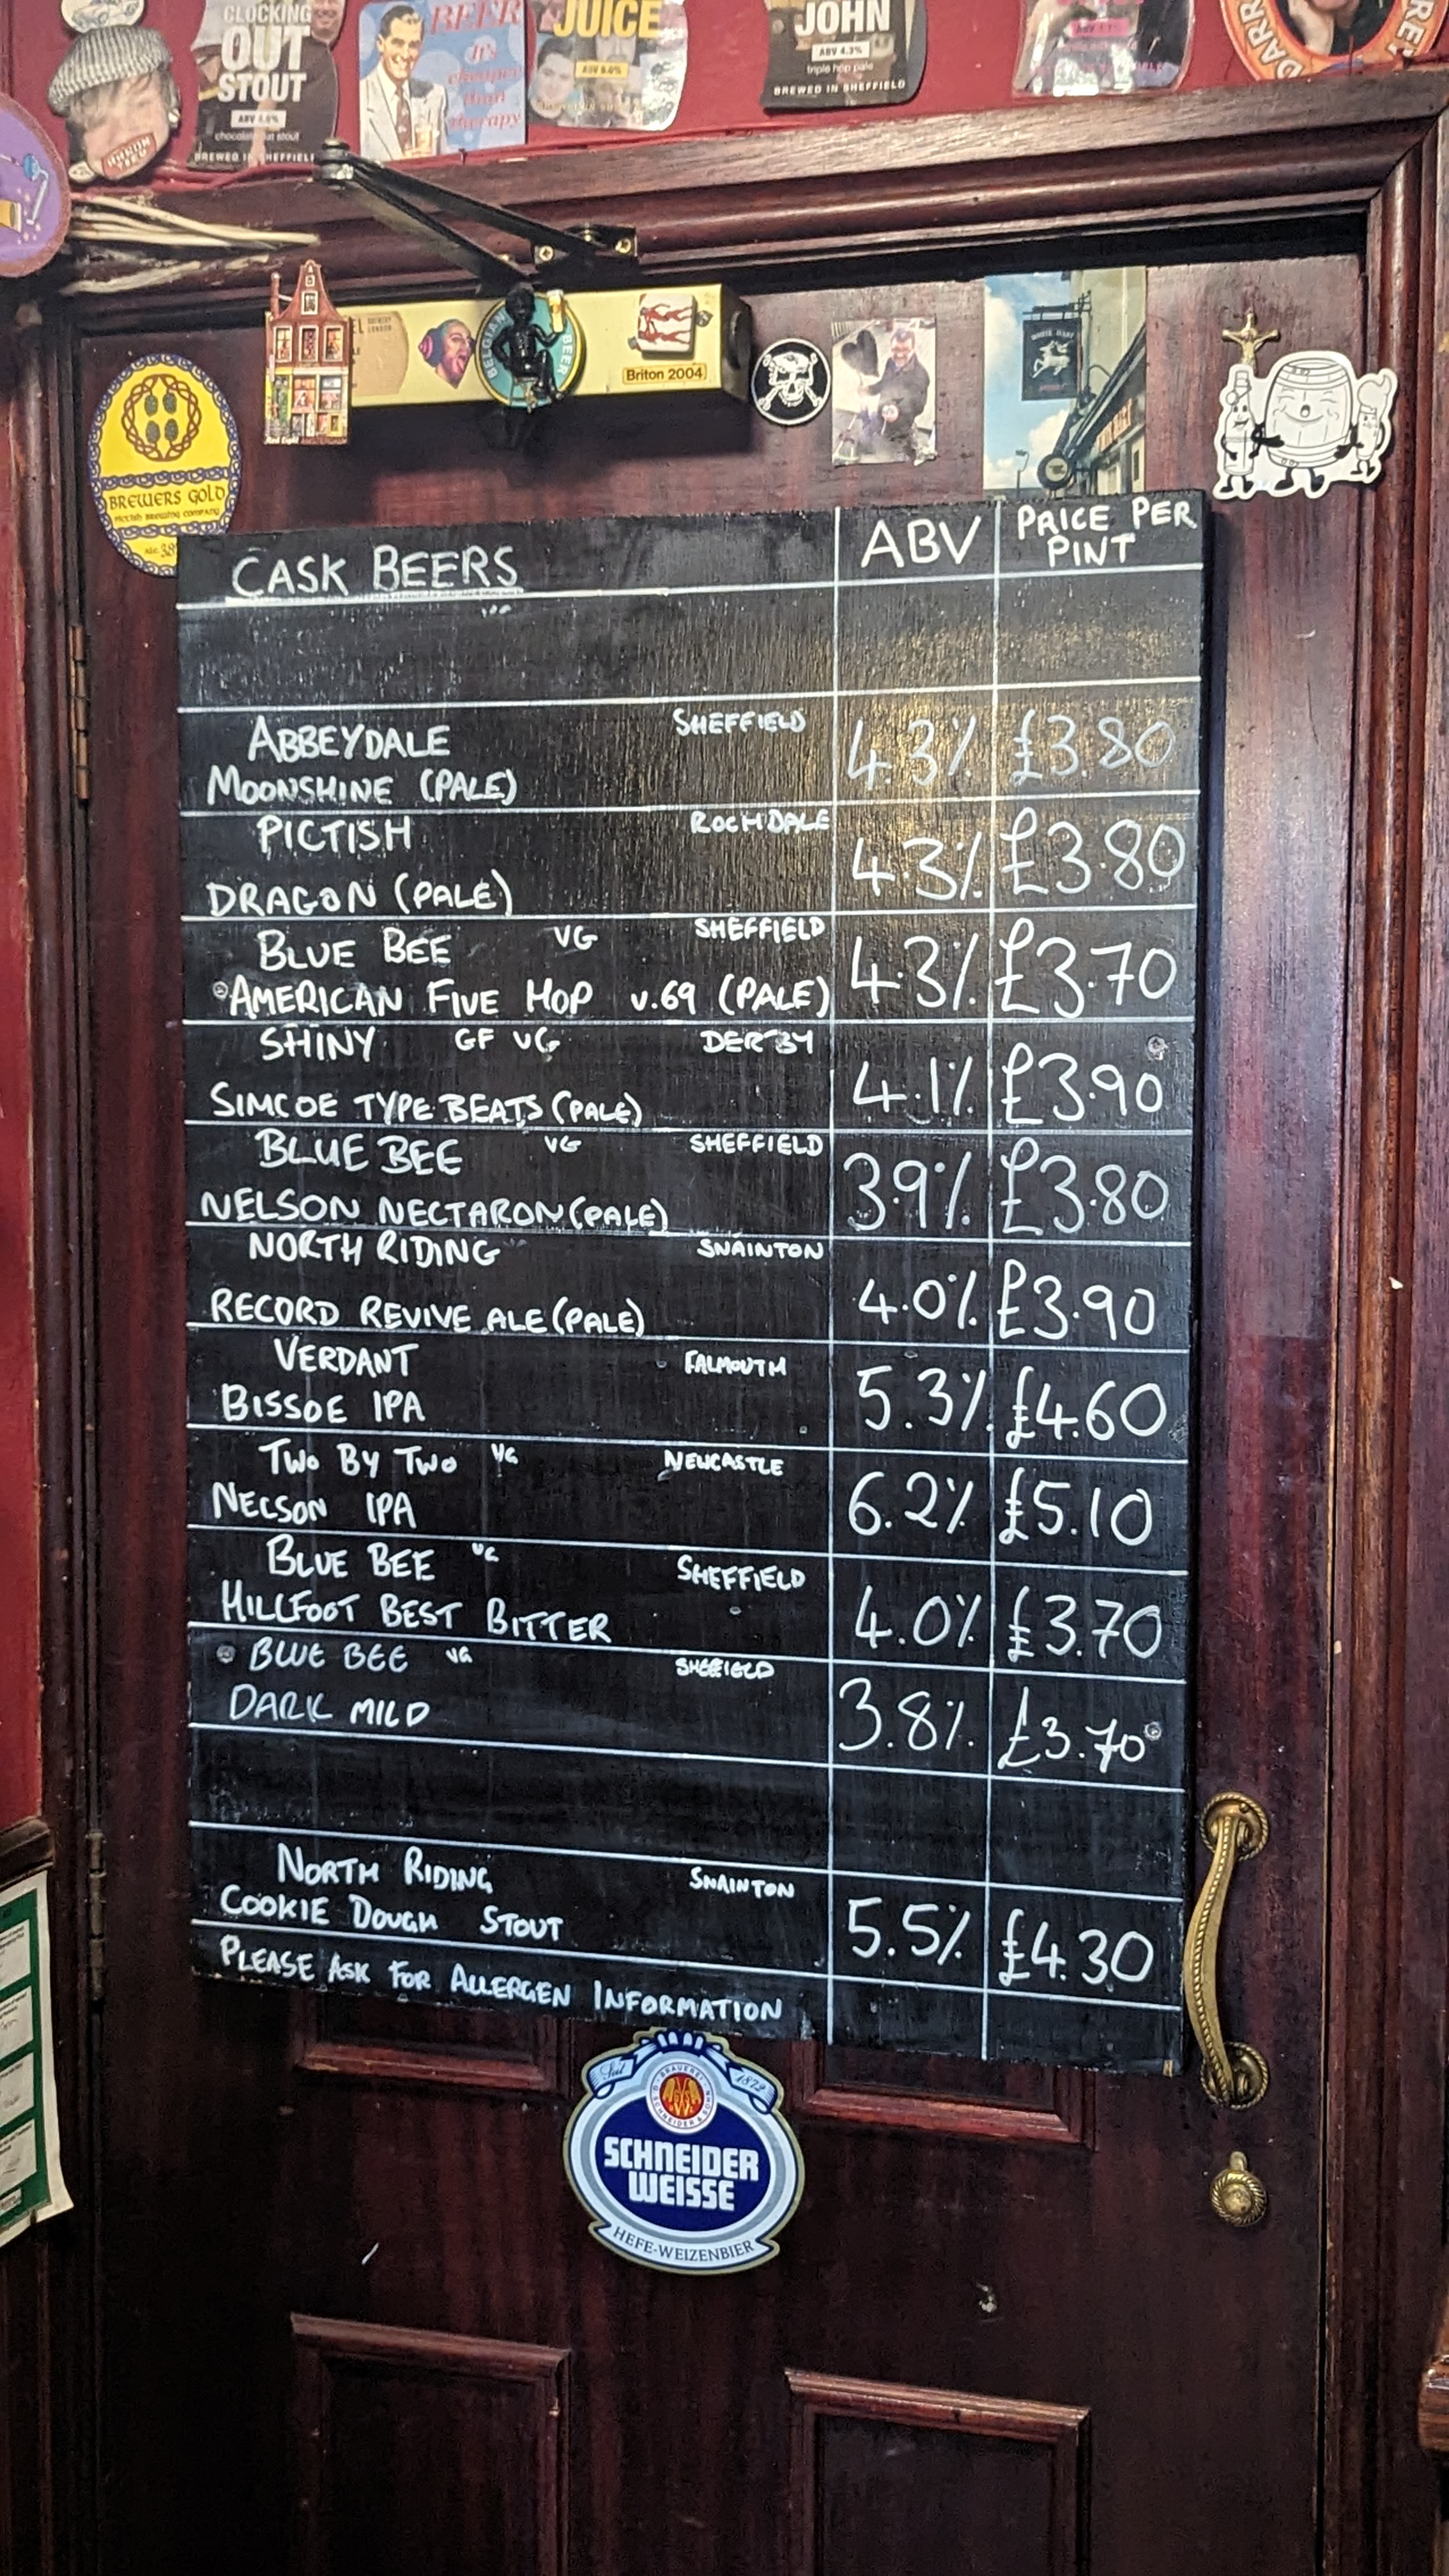 CLOCKING
OUT
STOUT
chocolate oat stout
BREWED IN SHEFFIELD
BEER
It's
cheaper
than
therapy
JUICE
JOHN
ABV 4.3%
triple hop pale
BREWED IN SHEFFIELD
BELGIAN BEER
Briton 2004
BREWERS GOLD
PICTISH BREWING COMPANY
CASK BEERS
ABV
PRICE PER
PINT
ABBEYDALE SHEFFIELD
MOONSHINE (PALE)
4.3% £3.80
PICTISH ROCHDALE
DRAGON (PALE)
4.3% £3.80
BLUE BEE VG SHEFFIELD
AMERICAN FIVE HOP V.69 (PALE)
4.3% £3.70
SHINY GF VG DERBY
SIMCOE TYPE BEATS (PALE)
4.1% £3.90
BLUE BEE VG SHEFFIELD
NELSON NECTARON (PALE)
3.9% £3.80
NORTH RIDING SNAINTON
RECORD REVIVE ALE (PALE)
4.0% £3.90
VERDANT FALMOUTH
BISSOE IPA
5.3% £4.60
TWO BY TWO VG NEWCASTLE
NELSON IPA
6.2% £5.10
BLUE BEE VG SHEFFIELD
HILLFOOT BEST BITTER
4.0% £3.70
BLUE BEE VG SHEFIELD
DARK MILD
3.8% £3.70
NORTH RIDING SNAINTON
COOKIE DOUGH STOUT
5.5% £4.30
PLEASE ASK FOR ALLERGEN INFORMATION
Seit 1872
SCHNEIDER
WEISSE
HEFE-WEIZENBIER